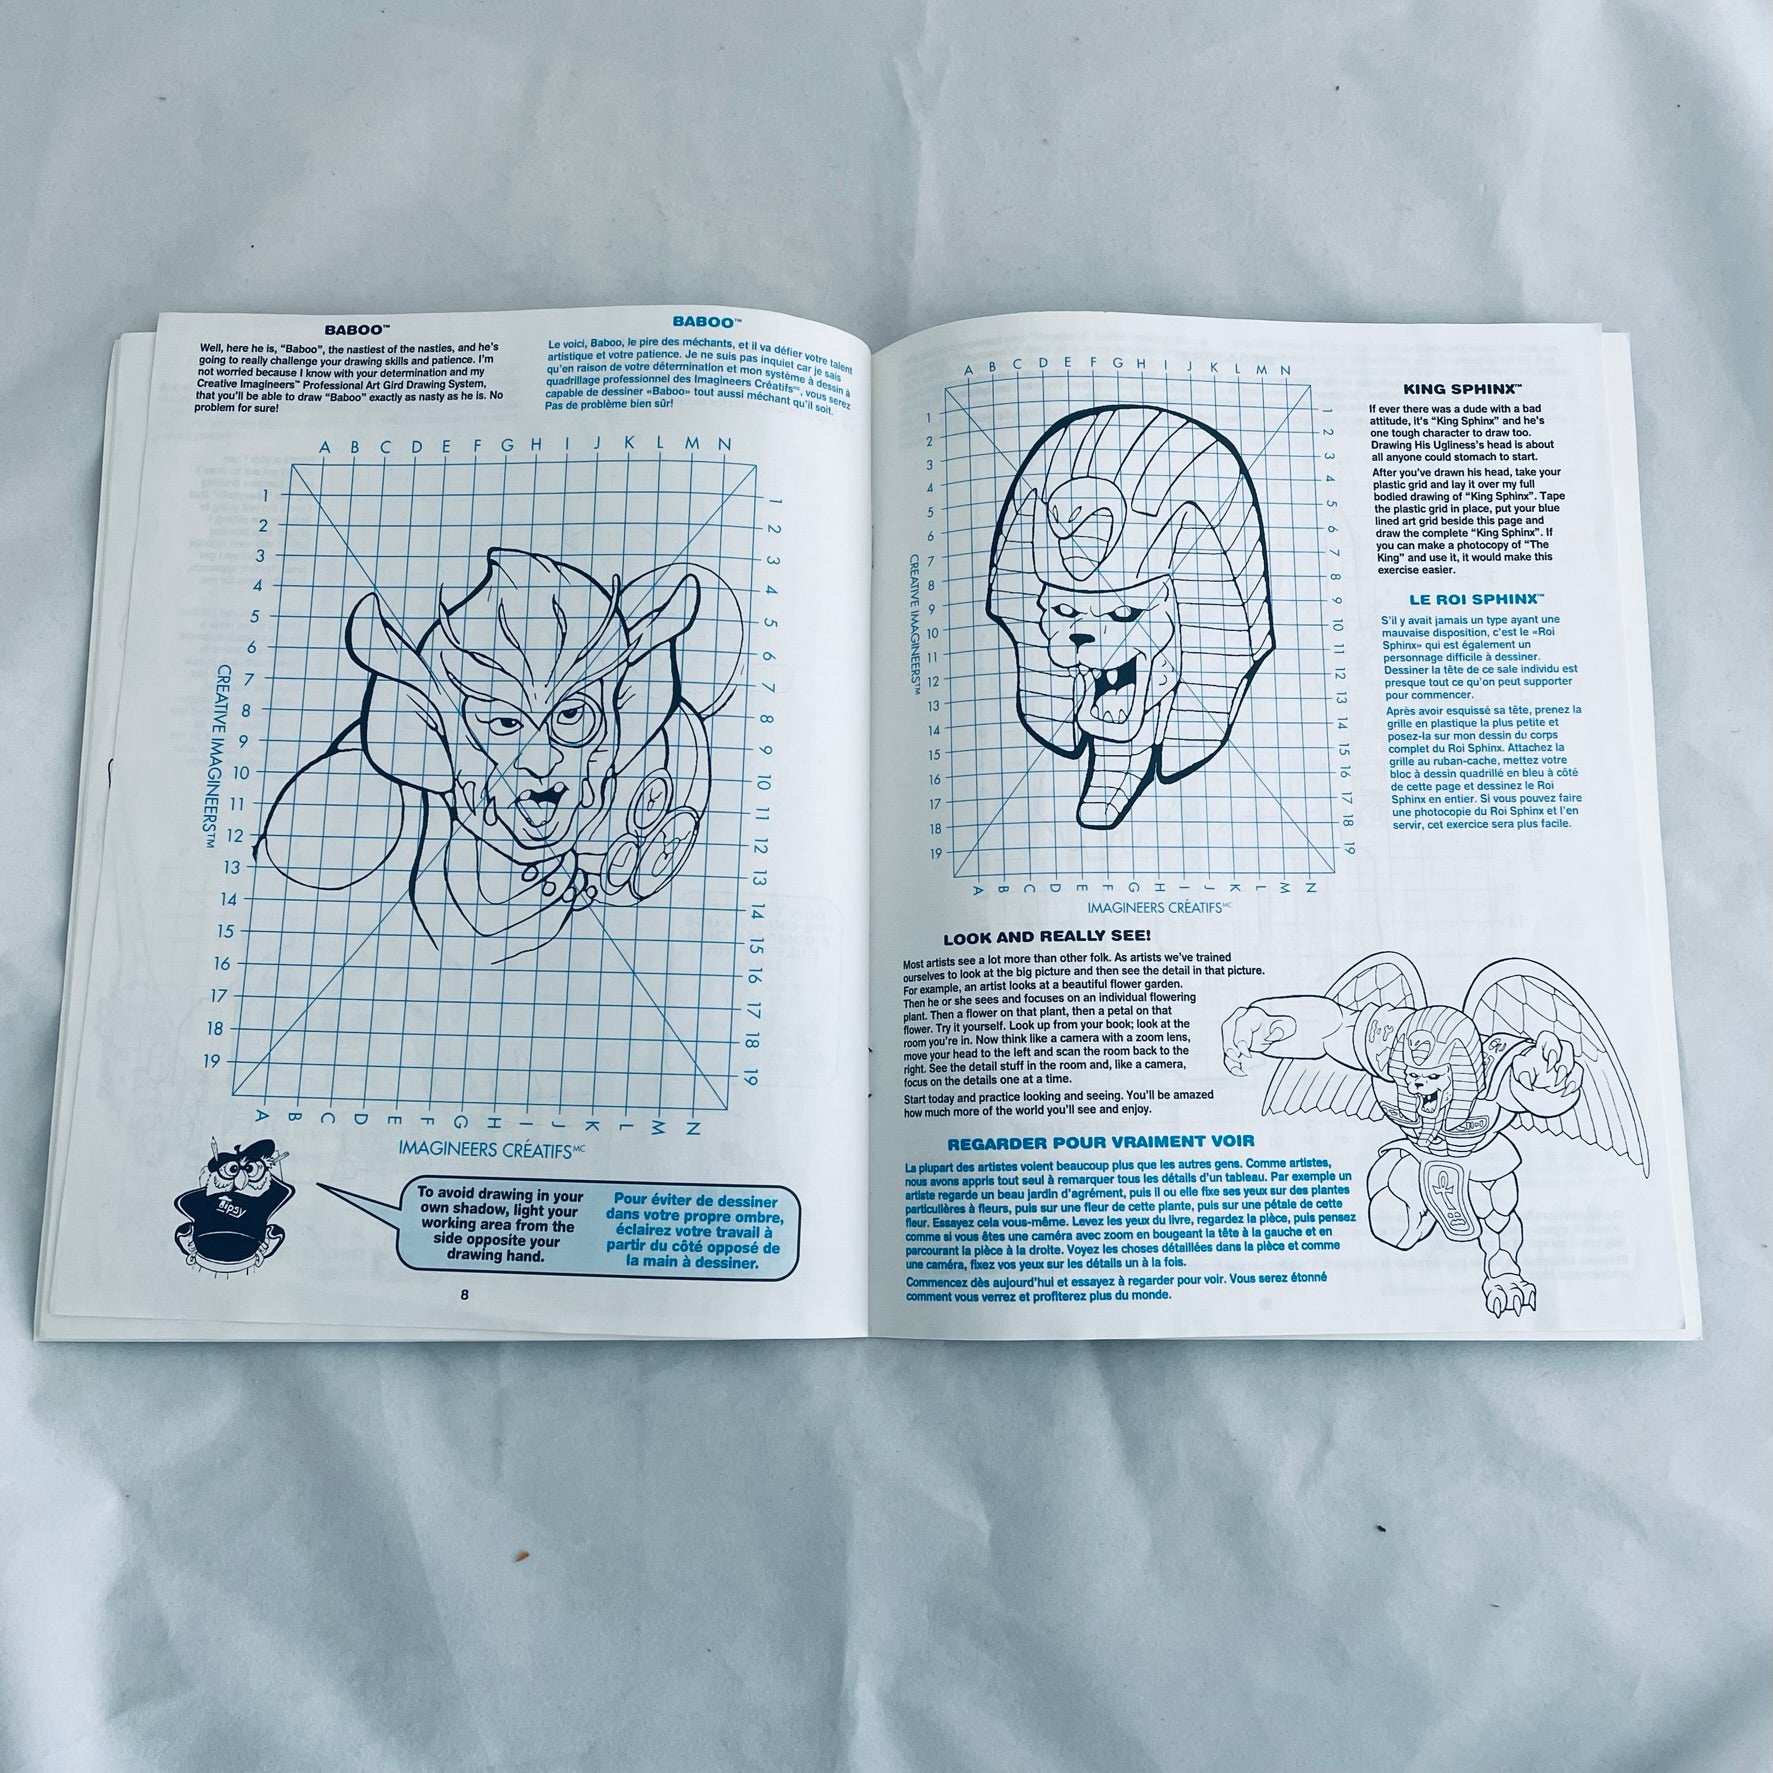 BABOO™
Well, here he is, "Baboo", the nastiest of the nasties, and he's
going to really challenge your drawing skills and patience. I'm
not worried because I know with your determination and my
Creative Imagineers™ Professional Art Gird Drawing System,
that you'll be able to draw "Baboo" exactly as nasty as he is. No
problem for sure!
BABOO™
Le voici, Baboo, le pire des méchants, et il va défier votre talent
artistique et votre patience. Je ne suis pas inquiet car je sais
qu'en raison de votre détermination et mon système à dessin à
quadrillage professionnel des Imagineers Créatifs™, vous serez
capable de dessiner «Baboo» tout aussi méchant qu'il soit.
Pas de problème bien sûr!
A B C D E F G H I J K L M N
1 1
2 2
3 3
4 4
5 5
6 6
7 7
8 8
9 9
10 10
11 11
12 12
13 13
14 14
15 15
16 16
17 17
18 18
19 19
CREATIVE IMAGINEERS™
A B C D E F G H I J K L M N
IMAGINEERS CRÉATIFS MC
Tipsy
To avoid drawing in your
own shadow, light your
working area from the
side opposite your
drawing hand.
Pour éviter de dessiner
dans votre propre ombre,
éclairez votre travail à
partir du côté opposé de
la main à dessiner.
8
A B C D E F G H I J K L M N
1 1
2 2
3 3
4 4
5 5
6 6
7 7
8 8
9 9
10 10
11 11
12 12
13 13
14 14
15 15
16 16
17 17
18 18
19 19
CREATIVE IMAGINEERS™
A B C D E F G H I J K L M N
IMAGINEERS CRÉATIFS MC
KING SPHINX™
If ever there was a dude with a bad
attitude, it's "King Sphinx" and he's
one tough character to draw too.
Drawing His Ugliness's head is about
all anyone could stomach to start.
After you've drawn his head, take your
plastic grid and lay it over my full
bodied drawing of "King Sphinx". Tape
the plastic grid in place, put your blue
lined art grid beside this page and
draw the complete "King Sphinx". If
you can make a photocopy of "The
King" and use it, it would make this
exercise easier.
LE ROI SPHINX™
S'il y avait jamais un type ayant une
mauvaise disposition, c'est le «Roi
Sphinx» qui est également un
personnage difficile à dessiner.
Dessiner la tête de ce sale individu est
presque tout ce qu'on peut supporter
pour commencer.
Après avoir esquissé sa tête, prenez la
grille en plastique la plus petite et
posez-la sur mon dessin du corps
complet du Roi Sphinx. Attachez la
grille au ruban-cache, mettez votre
bloc à dessin quadrillé en bleu à côté
de cette page et dessinez le Roi
Sphinx en entier. Si vous pouvez faire
une photocopie du Roi Sphinx et l'en
servir, cet exercice sera plus facile.
LOOK AND REALLY SEE!
Most artists see a lot more than other folk. As artists we've trained
ourselves to look at the big picture and then see the detail in that picture.
For example, an artist looks at a beautiful flower garden.
Then he or she sees and focuses on an individual flowering
plant. Then a flower on that plant, then a petal on that
flower. Try it yourself. Look up from your book; look at the
room you're in. Now think like a camera with a zoom lens,
move your head to the left and scan the room back to the
right. See the detail stuff in the room and, like a camera,
focus on the details one at a time.
Start today and practice looking and seeing. You'll be amazed
how much more of the world you'll see and enjoy.
REGARDER POUR VRAIMENT VOIR
La plupart des artistes voient beaucoup plus que les autres gens. Comme artistes,
nous avons appris tout seul à remarquer tous les détails d'un tableau. Par exemple un
artiste regarde un beau jardin d'agrément, puis il ou elle fixe ses yeux sur des plantes
particulières à fleurs, puis sur une fleur de cette plante, puis sur une pétale de cette
fleur. Essayez cela vous-même. Levez les yeux du livre, regardez la pièce, puis pensez
comme si vous êtes une caméra avec zoom en bougeant la tête à la gauche et en
parcourant la pièce à la droite. Voyez les choses détaillées dans la pièce et comme
une caméra, fixez vos yeux sur les détails un à la fois.
Commencez dès aujourd'hui et essayez à regarder pour voir. Vous serez étonné
comment vous verrez et profiterez plus du monde.